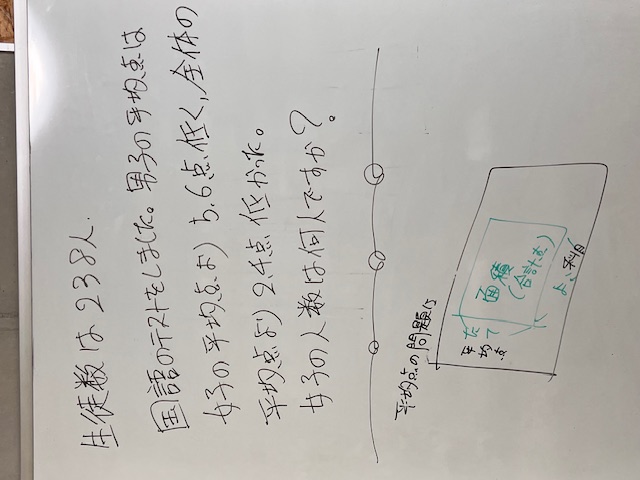 生徒数は238人.
国語のテストをしました。男子の平均点は
女子の平均点より 5.6点低く,全体の
平均点より 2.4点低かった。
女子の人数は何人ですか?
平均点の問題は
面積
(合計点)
たて
平均点
よこ